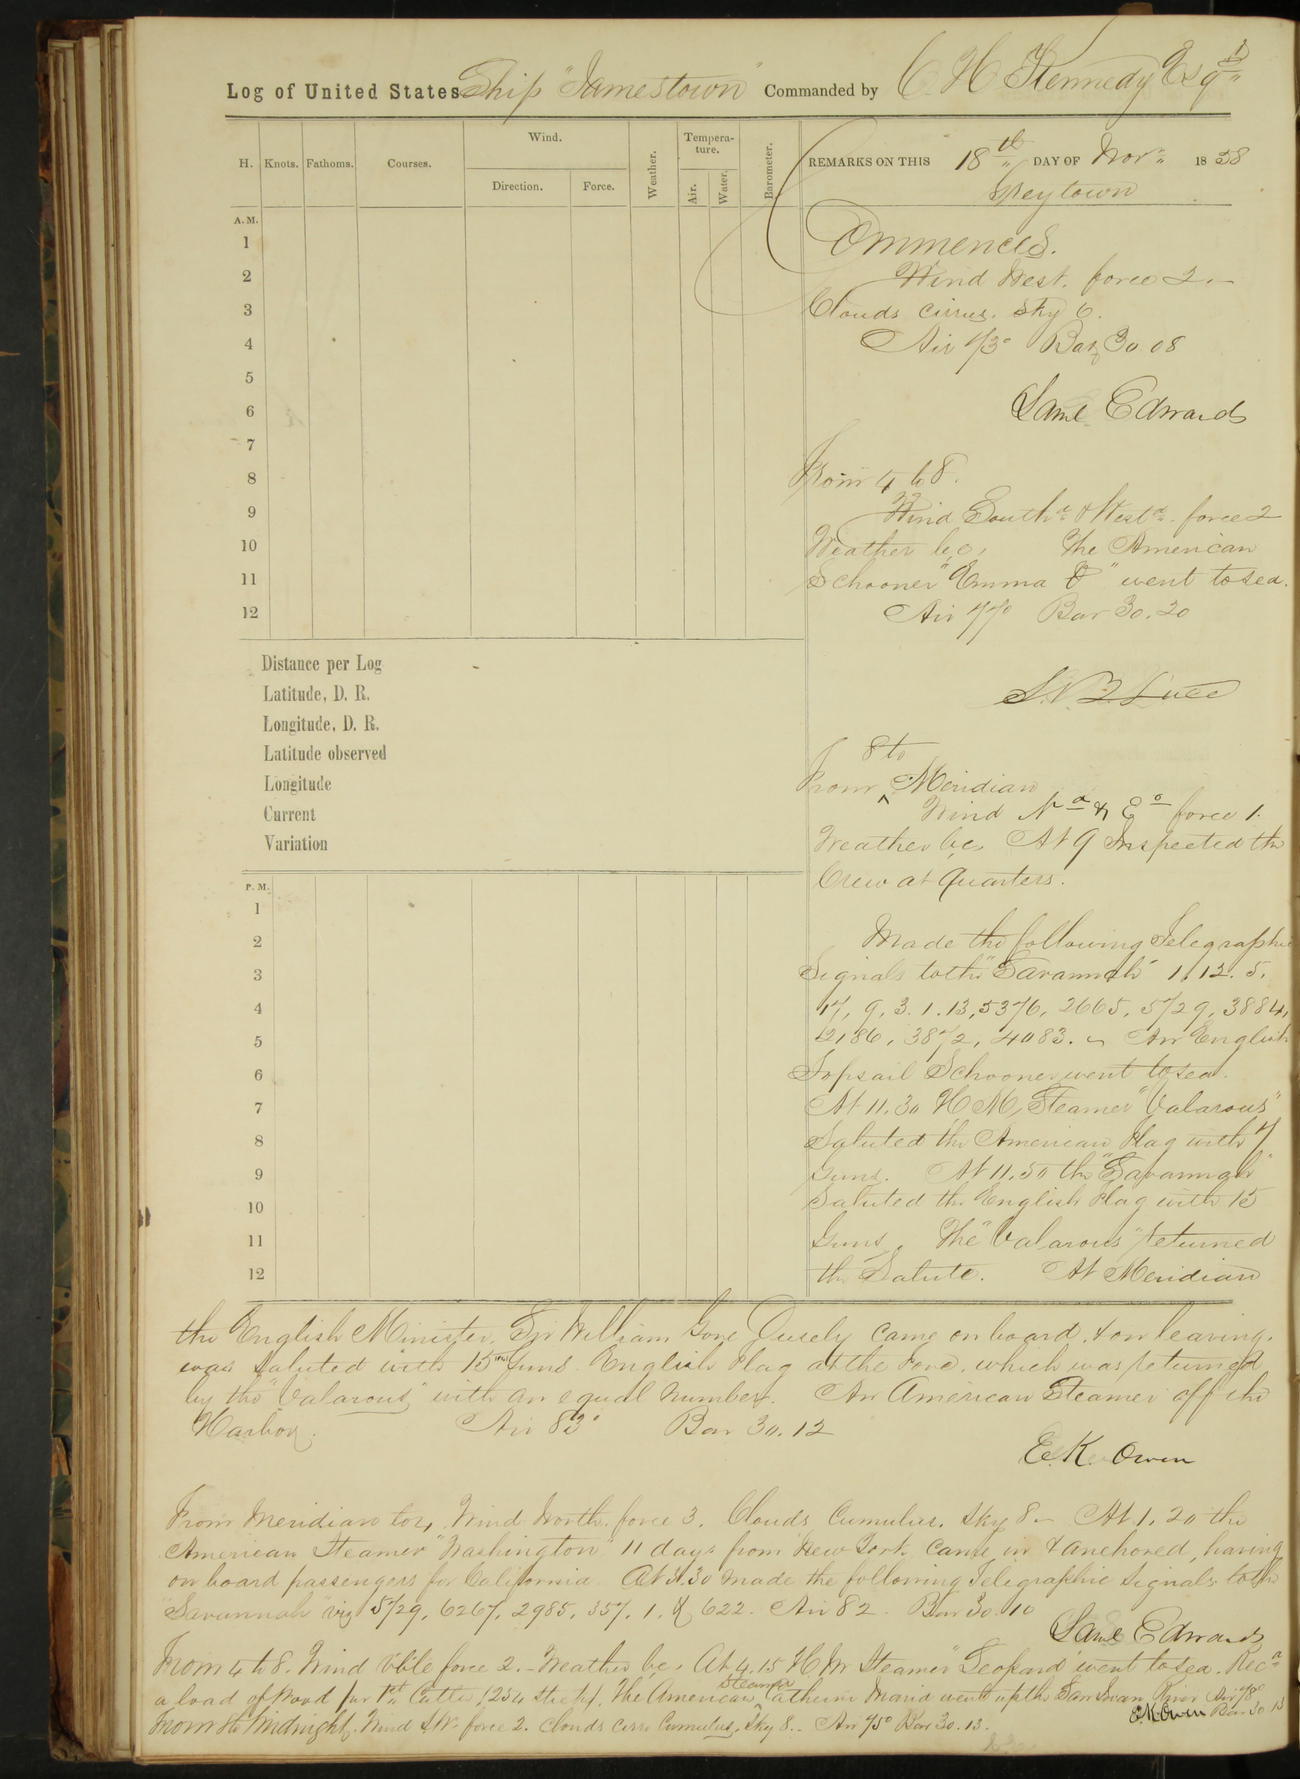 Log of United States Ship "Jamestown" Commanded by C. H. Kennedy Esqr
H. Knots. Fathoms. Courses. Wind. Direction. Force. Weather. Temperature. Air. Water. Barometer.
REMARKS ON THIS 18th DAY OF Novr 1858
Greytown
A.M.
1
2
3
4
5
6
7
8
9
10
11
12
Distance per Log
Latitude, D. R.
Longitude, D. R.
Latitude observed
Longitude
Current
Variation
P.M.
1
2
3
4
5
6
7
8
9
10
11
12
Commences.
Wind West. force 2.
Clouds cirrus. Sky 6.
Air 73° Bar 30.08
Saml Edwards
From 4 to 8.
Wind Southd & Westd. force 2
Weather b.c. The American
Schooner "Emma " went to sea.
Air 77° Bar 30.20
S. B. Luce
From 8 to Meridian
Wind Nd & Ed force 1.
Weather b.c. At 9 Inspected the
Crew at Quarters.
Made the following Telegraphic
Signals to the "Savannah" 1. 12. 5.
17, 9, 3. 1. 13, 5376, 2665, 5729, 3884,
2186, 3872, 4083. An English
Topsail Schooner went to sea.
At 11.30 H M Steamer "Valarous"
Saluted the American Flag with 7
Guns. At 11.50 the "Savannah"
Saluted the English Flag with 15
Guns. The "Valarous" returned
the Salute. At Meridian
the English Minister, Sir William Gore Ousely came on board, & on leaving.
was Saluted with 15 Guns English Flag at the Fore, which was returned
by the "Valarous" with an equal number. An American Steamer off the
Harbor. Air 83° Bar 30.12
E. K. Owen
From Meridian to 4, Wind North. force 3. Clouds Cumulus. Sky 8. At 1.20 the
American Steamer "Washington" 11 days from New York, came in & anchored, having
on board passengers for California. At 3.30 made the following Telegraphic Signals to the
"Savannah" viz 5729, 6267, 2985, 357, 1, & 622. Air 82. Bar 30.10
Saml Edwards
From 4 to 8. Wind V'ble force 2. Weather b.c. At 4.15 H M Steamer "Leopard" went to sea. Recd
a load of Wood for 1st Cutter (234 sticks). The American Steamer Catherine Maria went up the San Juan River Air 78°
E. K. Owen Bar 30.13
From 8 to Midnight. Wind S.W. force 2. Clouds Cirro Cumulus, Sky 8. Air 75° Bar 30.13.